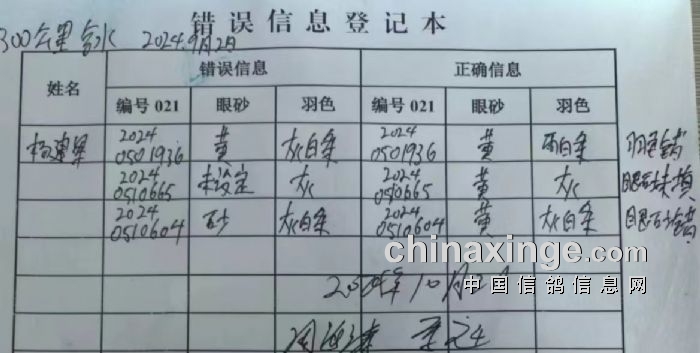 错误信息登记本
300公里 2024.9月2日
姓名 错误信息 正确信息
编号021 眼砂 羽色 编号021 眼砂 羽色
2024 0501936 黄 灰白条 2024 0501936 黄 雨白条 羽色错
2024 0510665 未设定 灰 2024 0510665 黄 灰 眼砂未填
2024 0510604 砂 灰白条 2024 0510604 黄 灰白条 眼砂错
chinaxinge.com
中国信鸽信息网
年10月